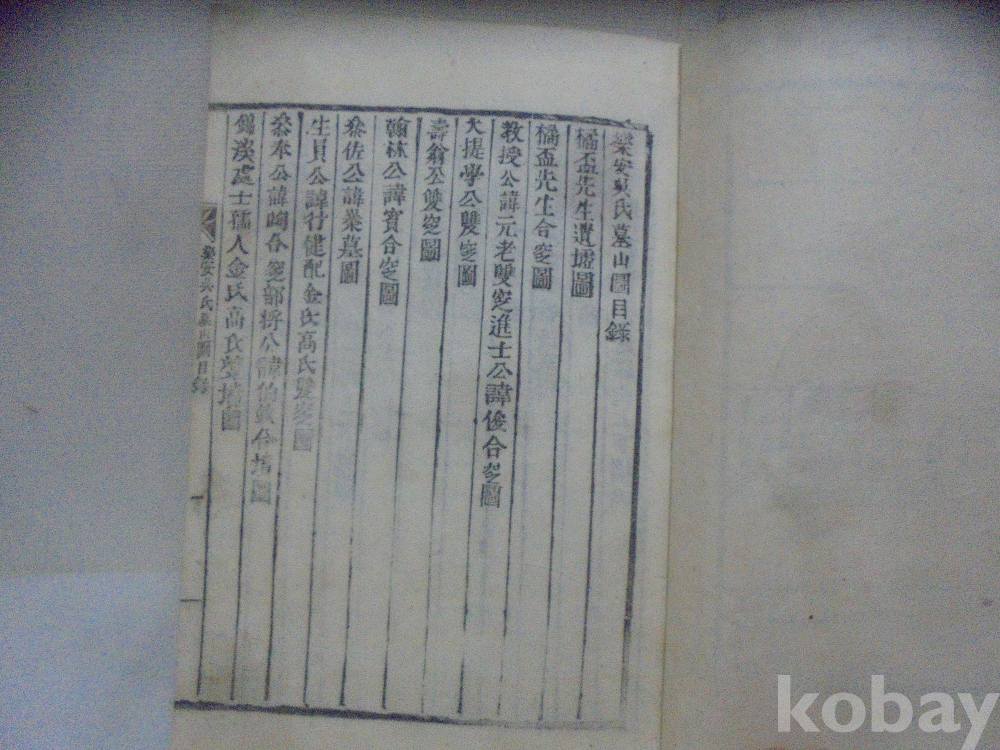 樂安吳氏墓山圖目錄
橘盃先生遺墟圖
橘盃先生合窆圖
教授公諱元老雙窆進士公諱俊合窆圖
大提學公雙窆圖
壽翁公雙窆圖
翰林公諱賓合窆圖
叅佐公諱業墓圖
生員公諱行健配金氏高氏雙窆圖
叅奉公諱峋合窆部將公諱伯 合墳圖
錦溪處士孺人金氏高氏雙墳圖
樂安吳氏墓山圖目錄
kobay